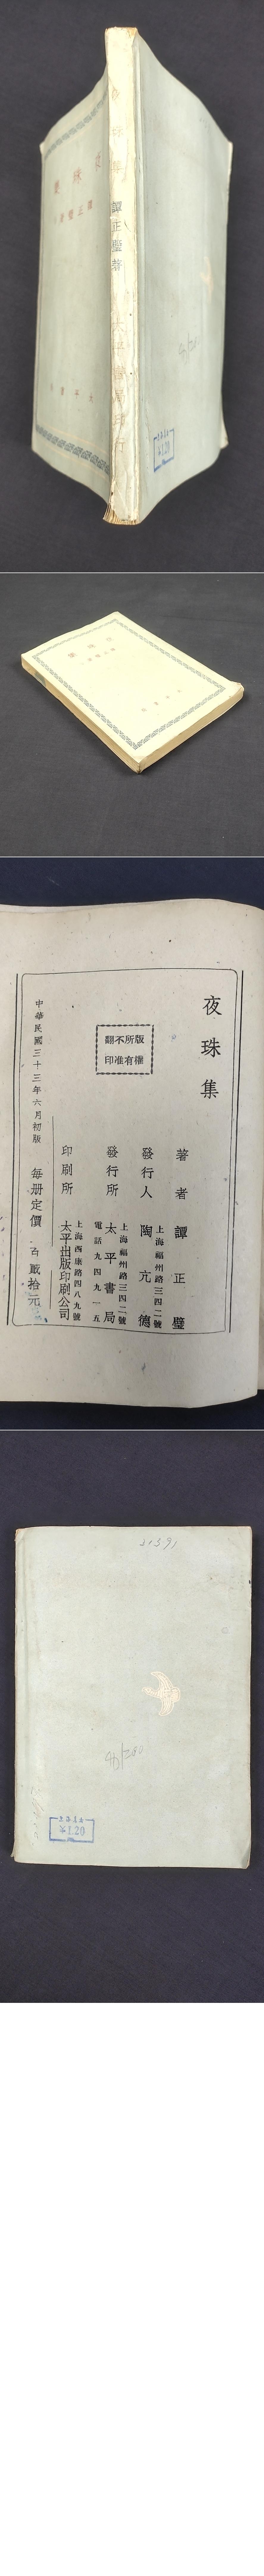 夜珠集
譚正璧著
夜珠集
譚正璧著
太平書局印行
夜珠集
版權所有
不准翻印
著者 譚正璧
發行人 陶亢德
上海福州路三四二號
發行所 太平書局
上海福州路三四二號
電話九四九一五
印刷所 太平出版印刷公司
上海西康路四八九號
中華民國三十三年六月初版 每册定價
貳拾元
21391
1.20